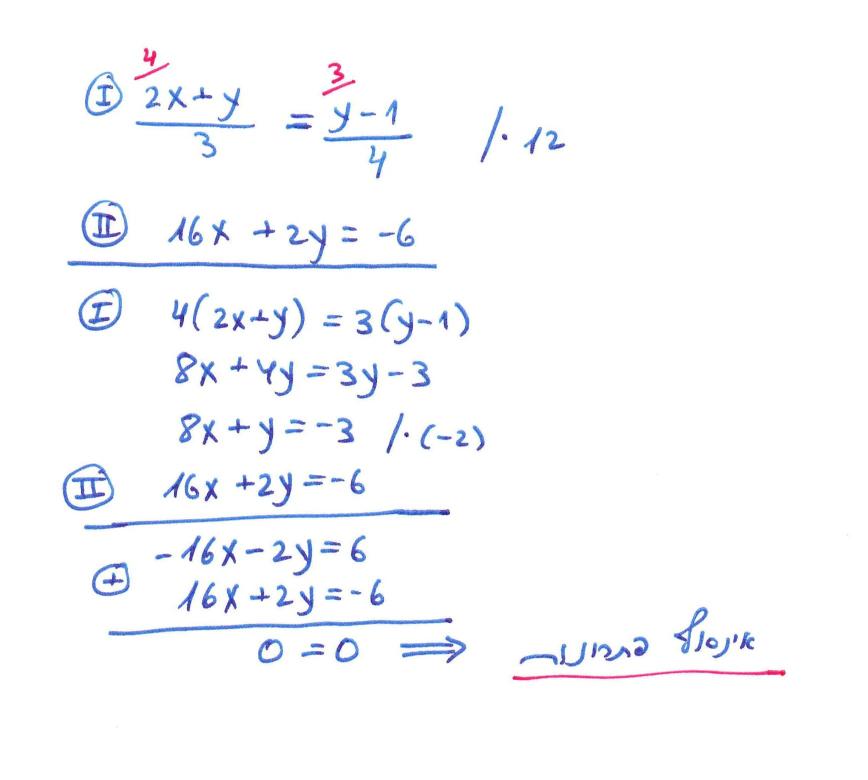 4 3
I (2x+y)/3 = (y-1)/4 /· 12
II 16x + 2y = -6
I 4(2x+y) = 3(y-1)
8x + 4y = 3y - 3
8x + y = -3 /· (-2)
II 16x + 2y = -6
-16x - 2y = 6
+ 16x + 2y = -6
0 = 0 ⟹ אינסוף פתרונות